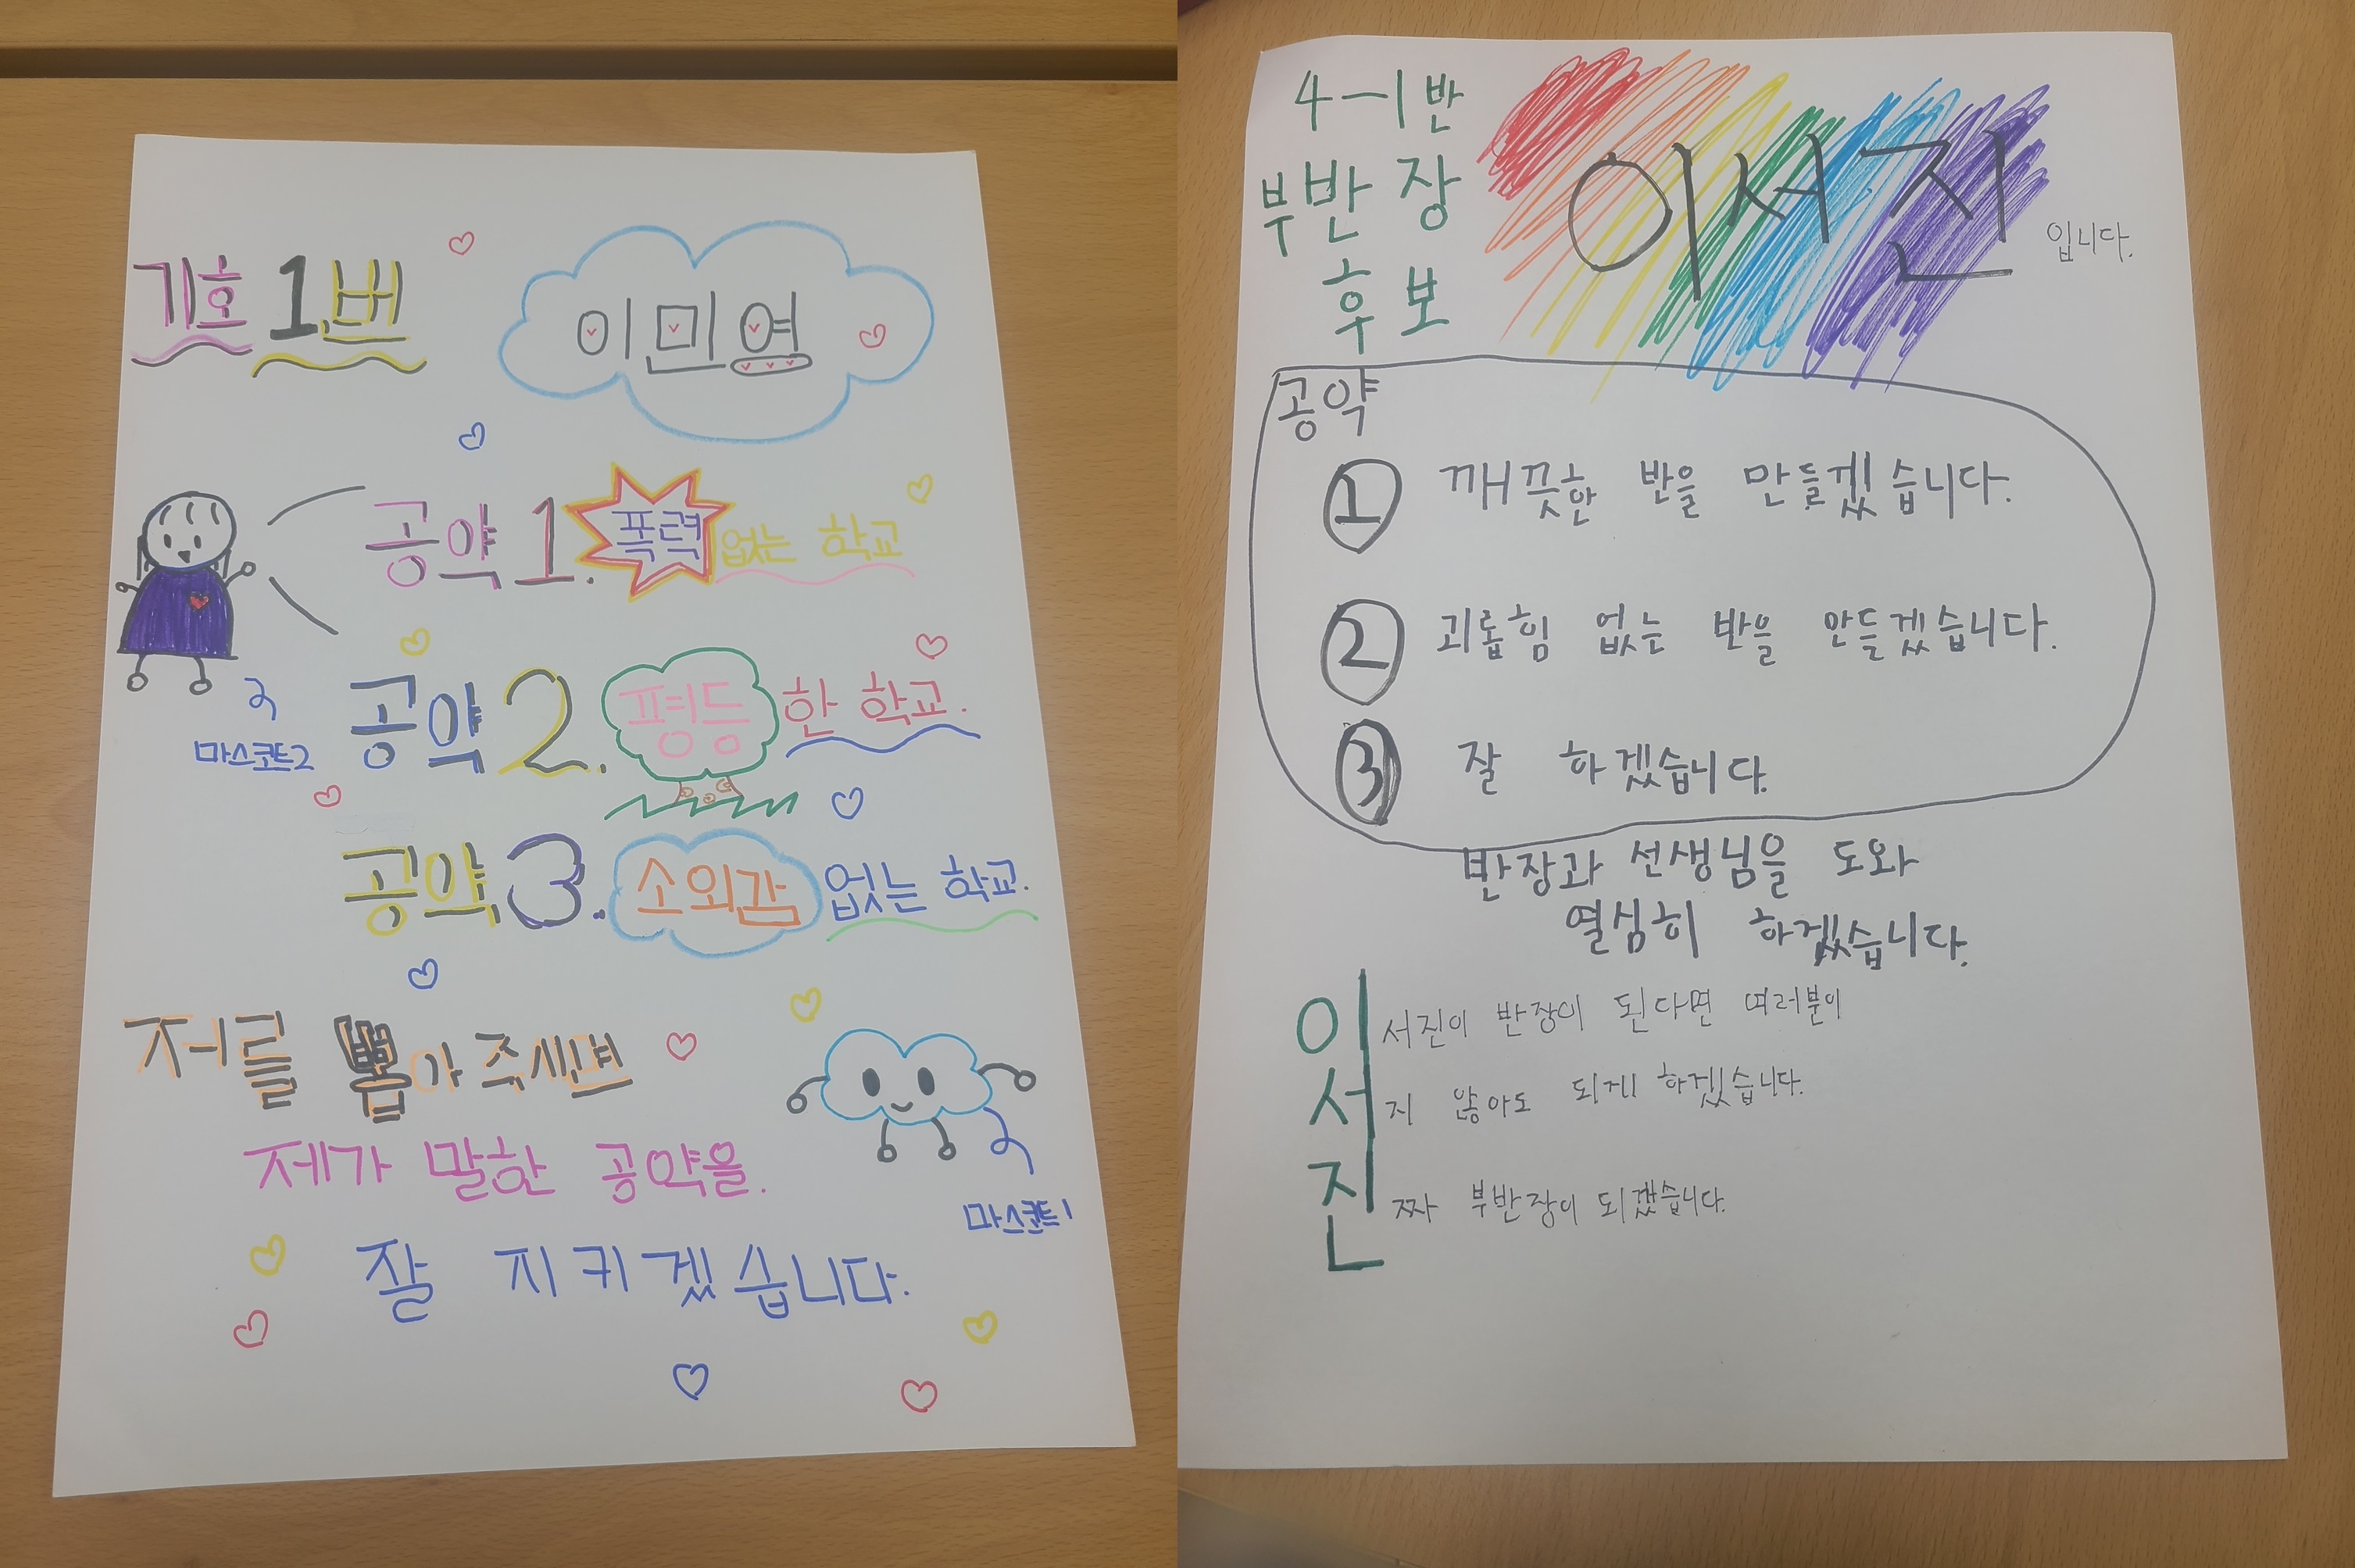 기호 1번
이민영
공약 1. 폭력 없는 학교
공약 2. 평등한 학교.
마스코트2
공약 3. 소외감 없는 학교.
저를 뽑아주시면
제가 말한 공약을.
마스코트1
잘 지키겠습니다.
4-1반
부반장
후보
이서진 입니다.
공약
① 깨끗한 반을 만들겠습니다.
② 괴롭힘 없는 반을 만들겠습니다.
③ 잘 하겠습니다.
반장과 선생님을 도와
열심히 하겠습니다.
이 서진이 반장이 된다면 여러분이
서 지 않아도 되게 하겠습니다.
진 짜 부반장이 되겠습니다.